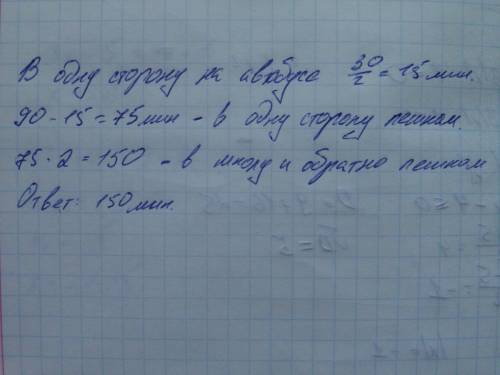 В одну сторону на автобусе 30/2 = 15 мин.
90 - 15 = 75 мин - в одну сторону пешком.
75 · 2 = 150 - в школу и обратно пешком
Ответ: 150 мин.